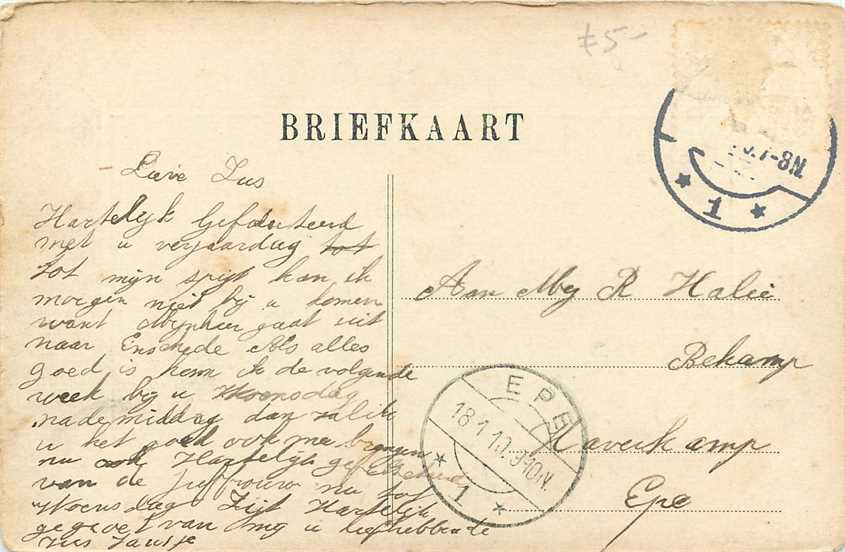 £5-
BRIEFKAART
7-8N
1
Lieve Zus
Hartelijk Gefeliciteerd
met u verjaardag tot
tot mijn spijt kan ik
morgen niet bij u komen
want Mijnheer gaat uit
naar Enschede Als alles
goed is kom ik de volgende
week bij u Woensdag
nademiddag dan zal ik
u het goed ook me brengen
nu ook Hartelijk gefeliciteerd
van de juffrouw nu tot
Woensdag Zijt Hartelijk
gegroet van mij u liefhebbende
Zus Jansje
Aan Mej R Halie
Bekamp
Haverkamp
Epe
EPE
18 1 10 9-10N
1